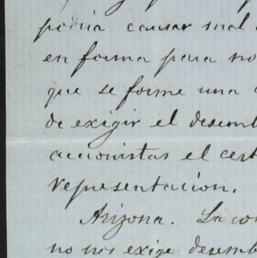 podia causar mal
en forma para no
que se forme una
de exigir el desemb
accionistas el cert
representacion.
Arizona. La con
no nos exige desemb